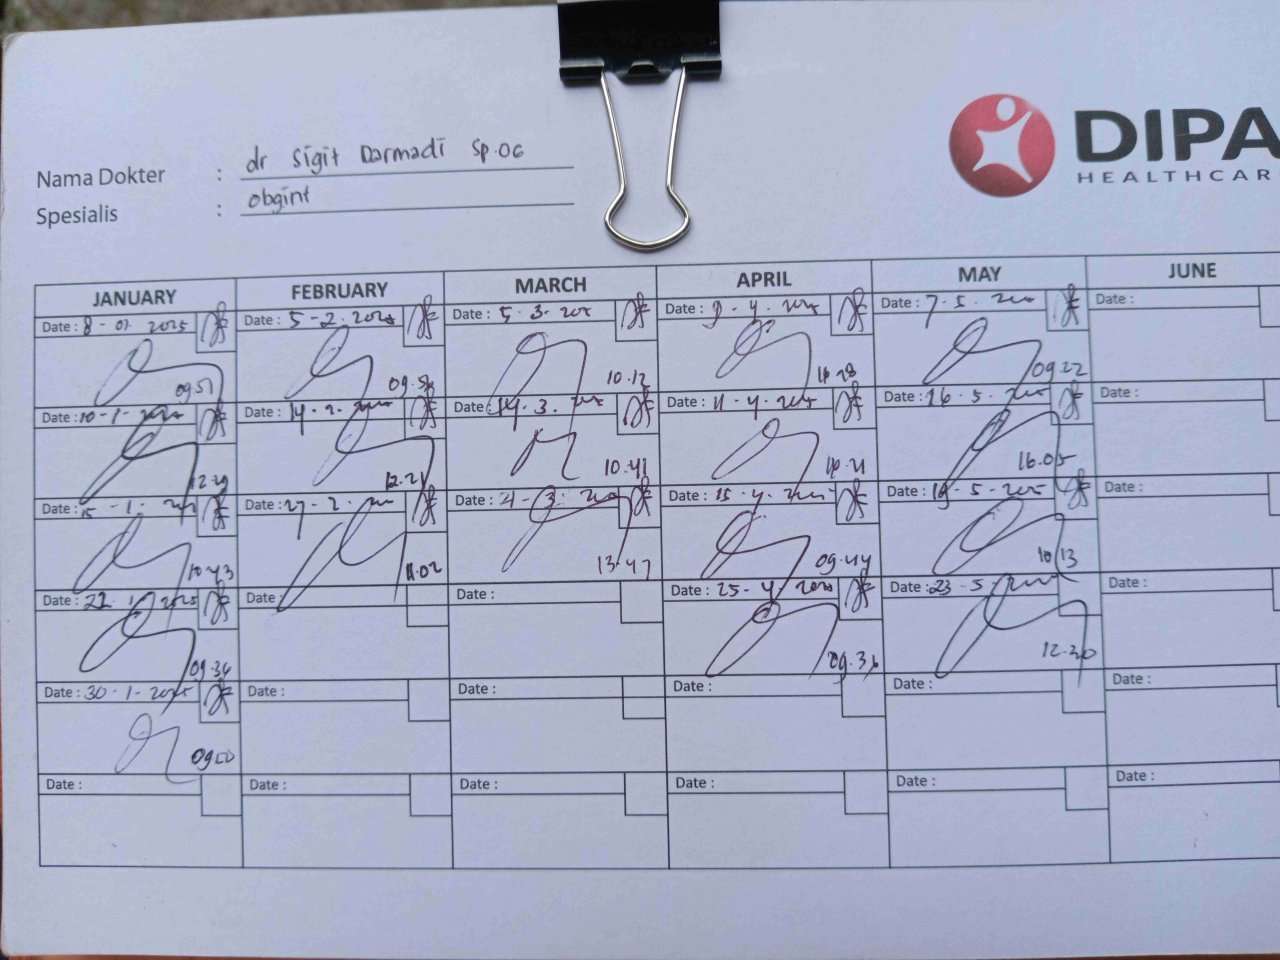 DIPA
HEALTHCAR
Nama Dokter : dr Sigit Darmadi Sp.OG
Spesialis : obgint
JANUARY FEBRUARY MARCH APRIL MAY JUNE
Date : 8 - 01 2025 Date : 5 - 2 . 2025 Date : 5 . 3 . 2025 Date : 9 - 4 . 2025 Date : 7 . 5 . 2025 Date :
09.51 09.58 10.12 09.22
Date : 10 - 1 - 2025 Date : 14 . 2 . 2025 Date : 14 . 3 . 2025 Date : 11 - 4 . 2025 Date : 16 . 5 . 2025 Date :
12.29 12.21 10.41 16.05
Date : 15 - 1 . 2025 Date : 27 - 2 . 2025 Date : 21 - 3 . 2025 Date : 15 . 4 . 2025 Date : 19 - 5 - 2025 Date :
10.43 11.02 13.47 09.44 10.13
Date : 22 . 1 . 2025 Date : Date : Date : 25 - 4 . 2025 Date : 23 - 5 . 2025 Date :
09.34 09.36 12.30
Date : 30 - 1 - 2025 Date : Date : Date : Date : Date :
09.50
Date : Date : Date : Date : Date : Date :